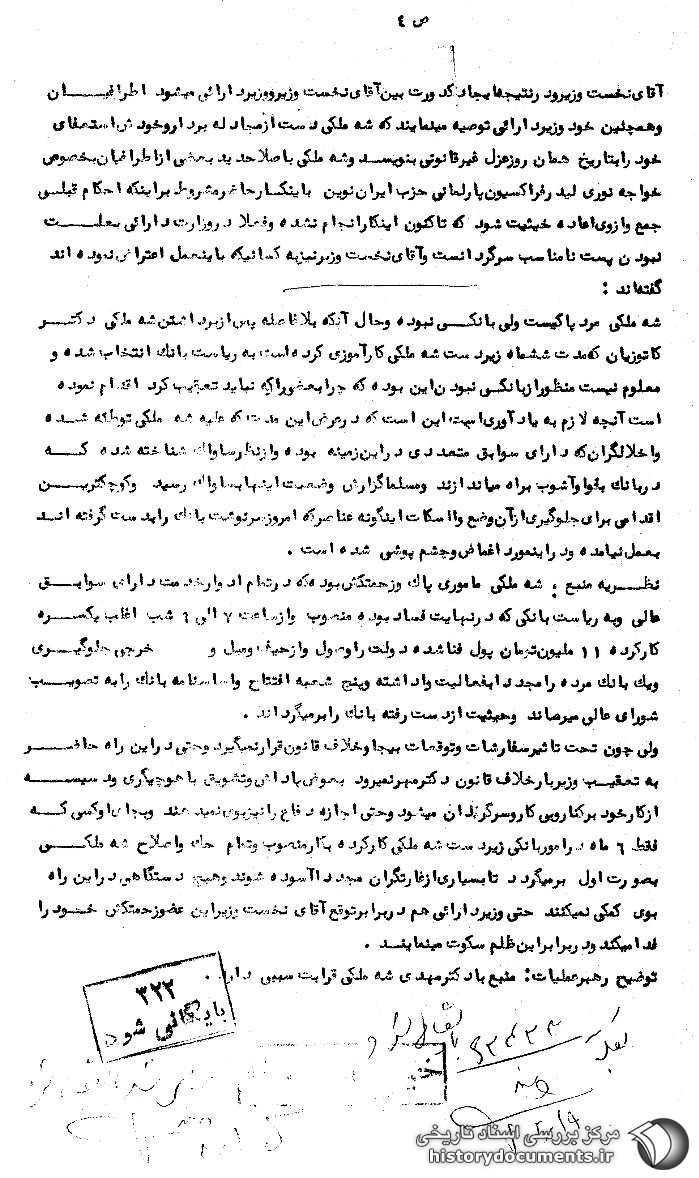 ص ٤
آقای نخست وزیر و در نتیجه ایجاد کدورت بین آقای نخست وزیر و وزیر دارائی میشود اطرافیان
و همچنین خود وزیر دارائی توصیه مینمایند که شه ملکی دست از مجادله بردارد و خودش استعفای
خود را بتاریخ همان روز عزل غیرقانونی بنویسد و شه ملکی باصلاحدید بعضی از اطرافیان بخصوص
خواجه نوری لیدر فراکسیون پارلمانی حزب ایران نوین باینکار حاضر مشروط براینکه احکام قبلی
جمع و از وی اعاده حیثیت شود که تاکنون اینکار انجام نشده و فعلا در وزارت دارائی بعلت
نبودن پست نامناسب سرگردانست و آقای نخست وزیر نیز به کسانیکه باینعمل اعتراض نموده اند
گفته‌اند :
شه ملکی مرد پاکیست ولی بانکی نبوده و حال آنکه بلافاصله پس از برداشتن شه ملکی دکتر
کاتوزیان که مدت ششماه زیردست شه ملکی کارآموزی کرده است به ریاست بانک انتخاب شده و
معلوم نیست منظور از بانکی نبودن این بوده که چرا بعضو راکه نباید تعقیب کرد اقدام نموده
است آنچه لازم به یادآوری است این است که در عرض این مدت که علیه شه ملکی توطئه شده
و اخلالگران که دارای سوابق متعددی در این زمینه بوده و از نظر ساواک شناخته شده که
در بانک بلوا و آشوب براه میاندازند و مسلما گزارش وضعیت اینها بساواک رسید و کوچکترین
اقدامی برای جلوگیری از آن وضع و اسکات اینگونه عناصر که امروز سرنوشت بانک را بدست گرفته اند
بعمل نیامده و در اینمورد اغماض و چشم پوشی شده است .
نظریه منبع : شه ملکی ماموری پاک و زحمتکش بوده که در تمام ادوار خدمت دارای سوابق
عالی و به ریاست بانکی که در نهایت فساد بوده منصوب و از ساعت ۷ الی ۹ شب اغلب یکسره
کارکرده ۱۱ ملیون تومان پول فنا شده دولت را وصول و از حیف و میل و خرجی جلوگیری
و یک بانک مرده را مجددا بفعالیت واداشته و پنج شعبه افتتاح و اساسنامه بانک را به تصویب
شورای عالی میرساند و حیثیت از دست رفته بانک را برمیگرداند .
ولی چون تحت تاثیر سفارشات و توقعات بیجا و خلاف قانون قرار نمیگیرد و حتی در این راه حاضر
به تعقیب وزیر بار خلاف قانون دکتر مهر نمیرود بعوض پاداش و تشویق با هوچیگری و دسیسه
از کار خود برکنار و بی کار و سرگردان میشود و حتی اجازه دفاع را نیز بوی نمیدهند و بجای او کسی که
فقط ٦ ماه در امور بانکی زیردست شه ملکی کارکرده بکار منصوب و تمام حک و اصلاح شه ملکی
بصورت اول برمیگردد تا بسیاری از غارتگران مجددا آسوده شوند و هیچ دستگاهی در این راه
بوی کمکی نمیکنند حتی وزیر دارائی هم در برابر توقع آقای نخست وزیر این عضو زحمتکش خود را
فدا میکند و در برابر این ظلم سکوت مینمایند .
توضیح رهبر عملیات: منبع با دکتر مهدی شه ملکی قرابت سببی دارد .
۳۲۲
بایگانی شود
مرکز بررسی اسناد تاریخی
historydocuments.ir